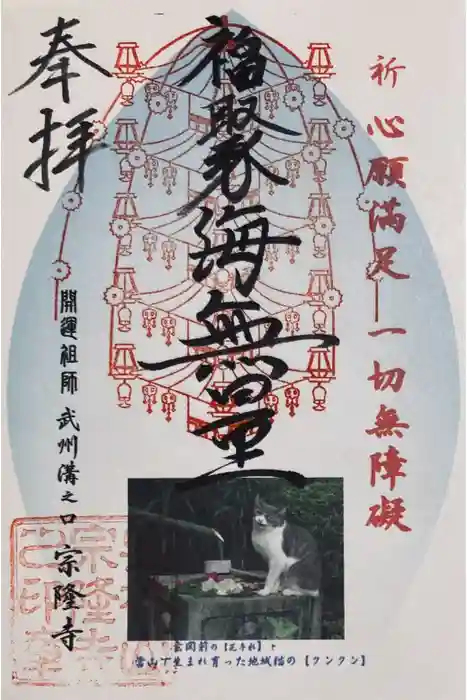 祈心願満足 一切無障礙
福聚海無量
奉拝
開運祖師 武州溝之口 宗隆寺
玄関前の【花手水】と
當山で生まれ育った地域猫の【クンクン】